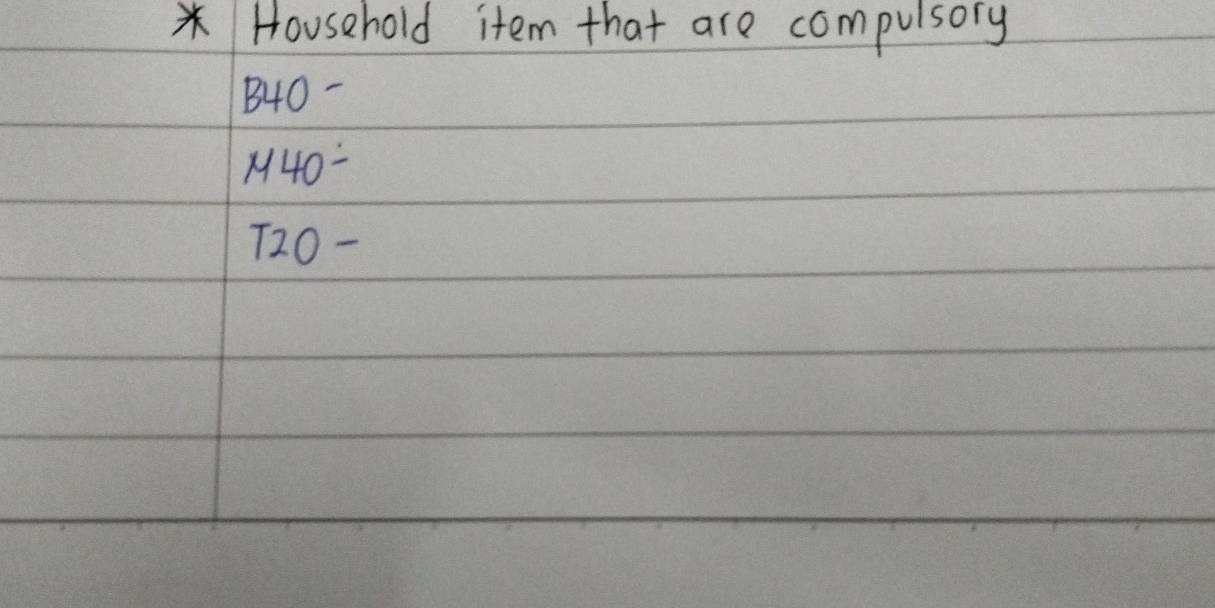 * Household item that are compulsory
B40 -
M40 -
T20 -